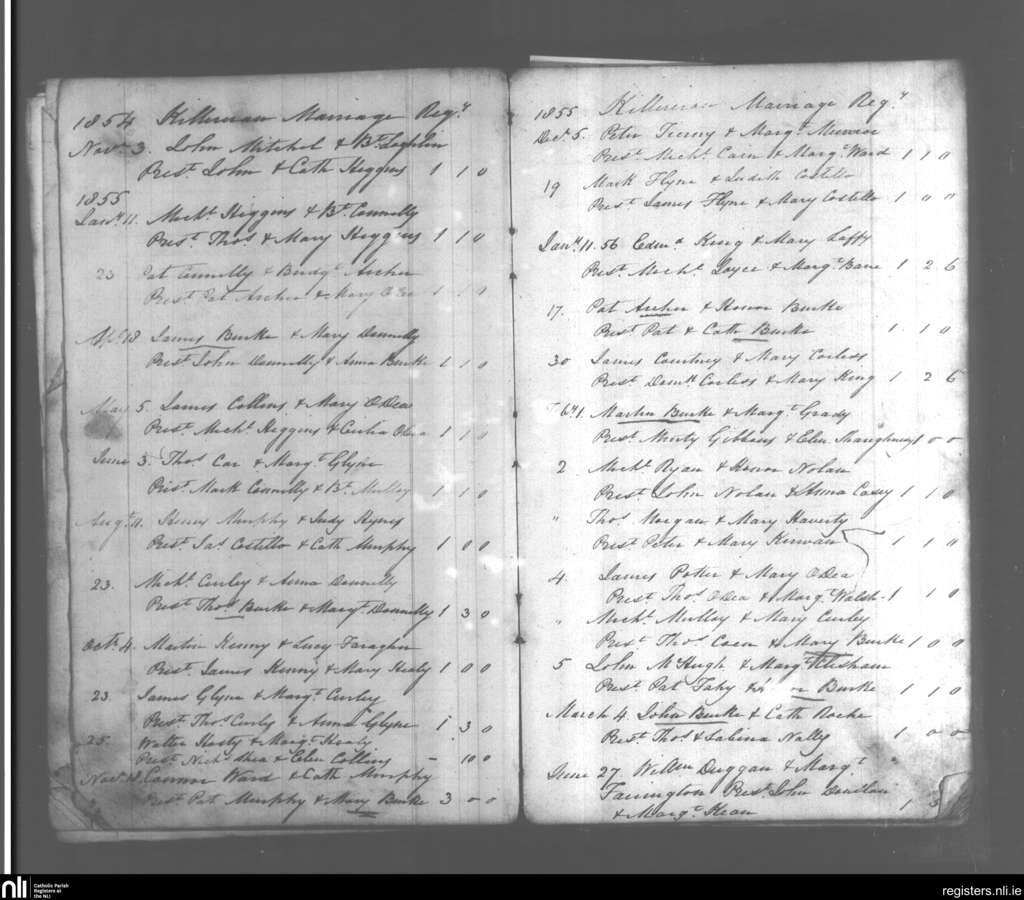 1854 Killereran Marriage Regy
Novr 3. John Mitchel & Bt Loghlin
Prest John & Cath Higgins 1 1 0
1855
Jany 11. Michl Higgins & Bt Connelly
Prest Thos & Mary Higgins 1 1 0
23 Pat Connelly & Bridgt Archer
Prest Pat Archer & Mary O Dea 1 . 0
Apl 18 James Burke & Mary Donnelly
Prest John Donnelly & Anna Burke 1 1 0
May 5. James Collins & Mary O Dea
Prest Michl Higgins & Cecilia Odea 1 1 0
June 3. Thos Car & Margt Glyne
Prest Mark Connelly & Bt Mulloy 1 1 0
Augt 11. Henry Murphy & Judy Hynes
Prest Jas Costello & Cath Murphy 1 0 0
23. Michl Curley & Anna Donnelly
Prest Thos Burke & Margt Donnelly 1 3 0
Octr 4. Martin Kenny & Lucy Faragher
Prest James Kenny & Mary Healy 1 0 0
23. James Glyne & Margt Curley
Prest Thos Curly & Anna Glyne 1 3 0
25. Walter Hosty & Margt Healy
Prest Nichs Shea & Elen Collins – 10 0
Novr Connor Ward & Cath Murphy
Prest Pat Murphy & Mary Burke 3 0 0
1855 Killereran Marriage Regy
Decr 5. Peter Tierny & Margt
Prest Michl Cain & Margt Ward 1 1 0
19 Mark Flyne & Judith Costello
Prest James Flyne & Mary Costello 1 " "
Jany 11. 56 Edmd King & Mary Laffy
Prest Michl Joyce & Margt Bane 1 2 6
17. Pat Archer & Honor Burke
Prest Pat & Cath Burke 1 1 0
30 James Courtney & Mary Corless
Prest Domk Corless & Mary King 1 2 6
Feby 1. Martin Burke & Margt Grady
Prest Murty Gibbons & Elen Shaughnesy 1 0 0
2 Michl Ryan & Honor Nolan
Prest John Nolan & Anna Casey 1 1 0
" Thos Morgan & Mary Haverty
Prest Peter & Mary Kirwan 1 1 "
4. James Potter & Mary O Dea
Prest Thos O Dea & Margt Walsh 1 1 0
" Michl Mulloy & Mary Curley
Prest Thos Coen & Mary Burke 1 0 0
5 John McHugh & Margt
Prest Pat Fahy & Burke 1 1 0
March 4. John Burke & Cath Roche
Prest Thos & Sabina Nally 1 0 0
June 27 Willm Duggan & Margt
Farrington Prest John
& Margt Kean 1 3
nli Catholic Parish
Registers at
the NLI
registers.nli.ie